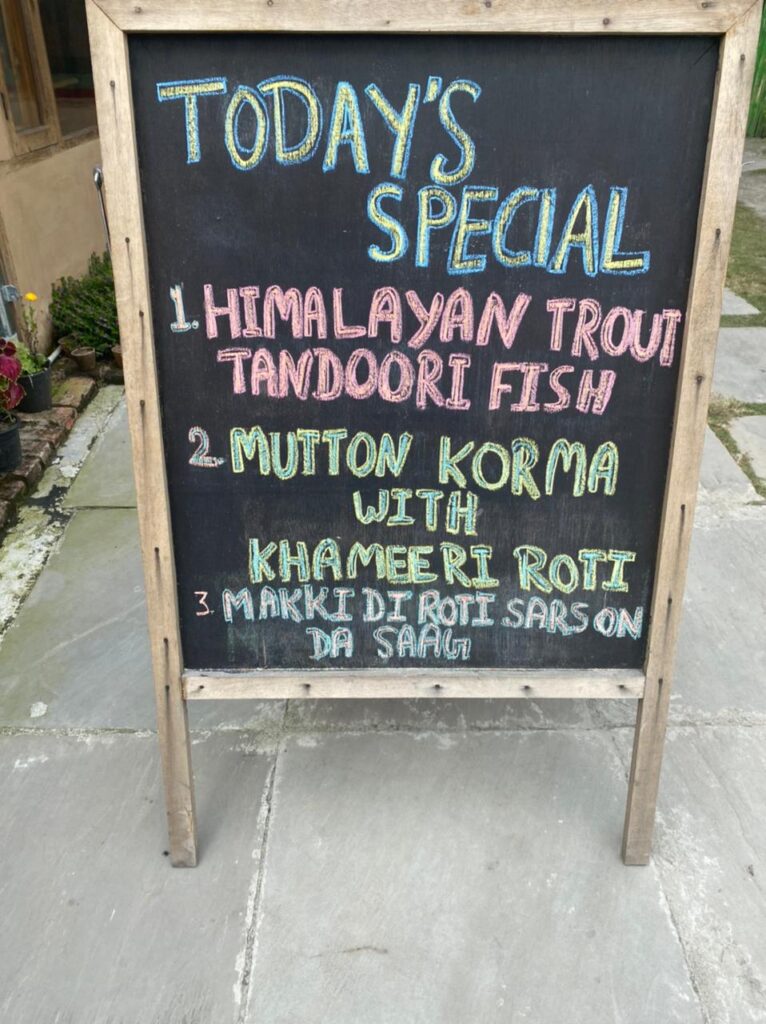 TODAY'S
SPECIAL
1. HIMALAYAN TROUT
TANDOORI FISH
2. MUTTON KORMA
WITH
KHAMEERI ROTI
3. MAKKI DI ROTI SARSON
DA SAAG